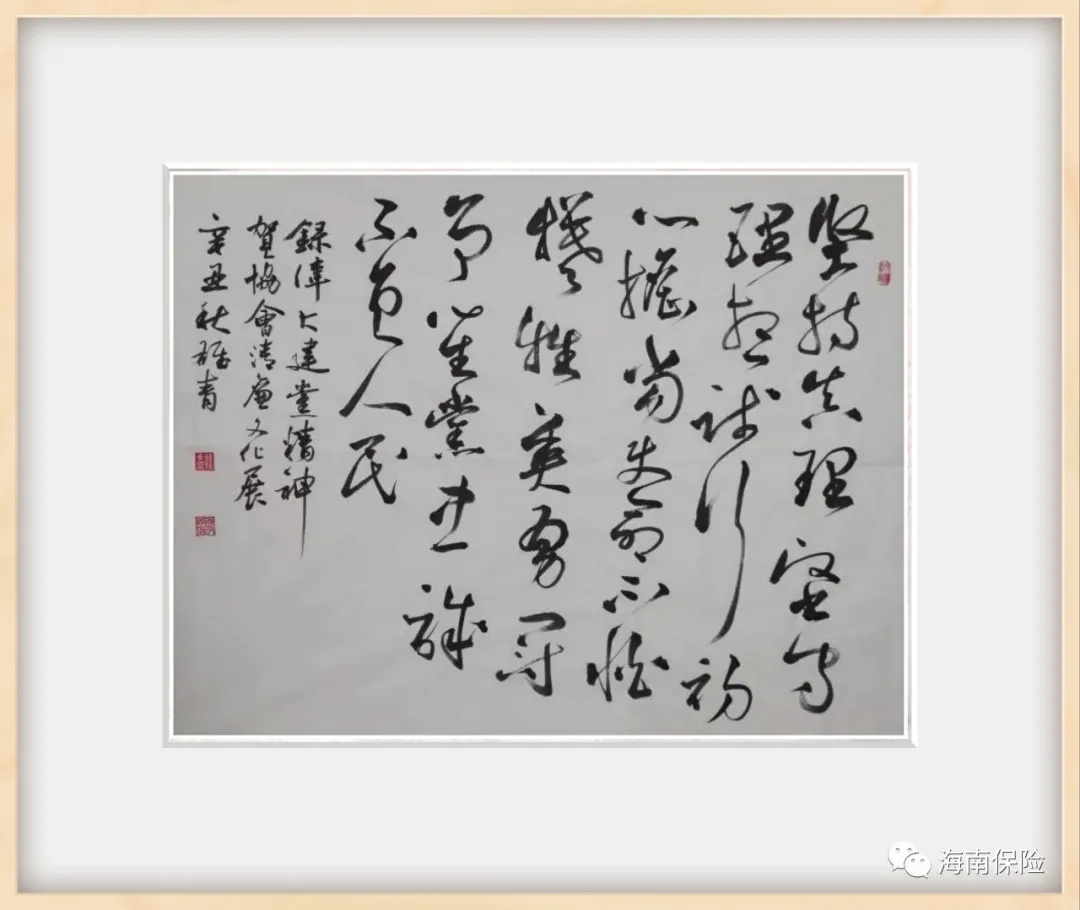 坚持真理坚守
理想践行初
心擔当使命不怕
犧牲英勇鬥
争對黨忠誠
不負人民
録偉大建党精神
賀協會清廉文化展
辛丑秋
海南保险